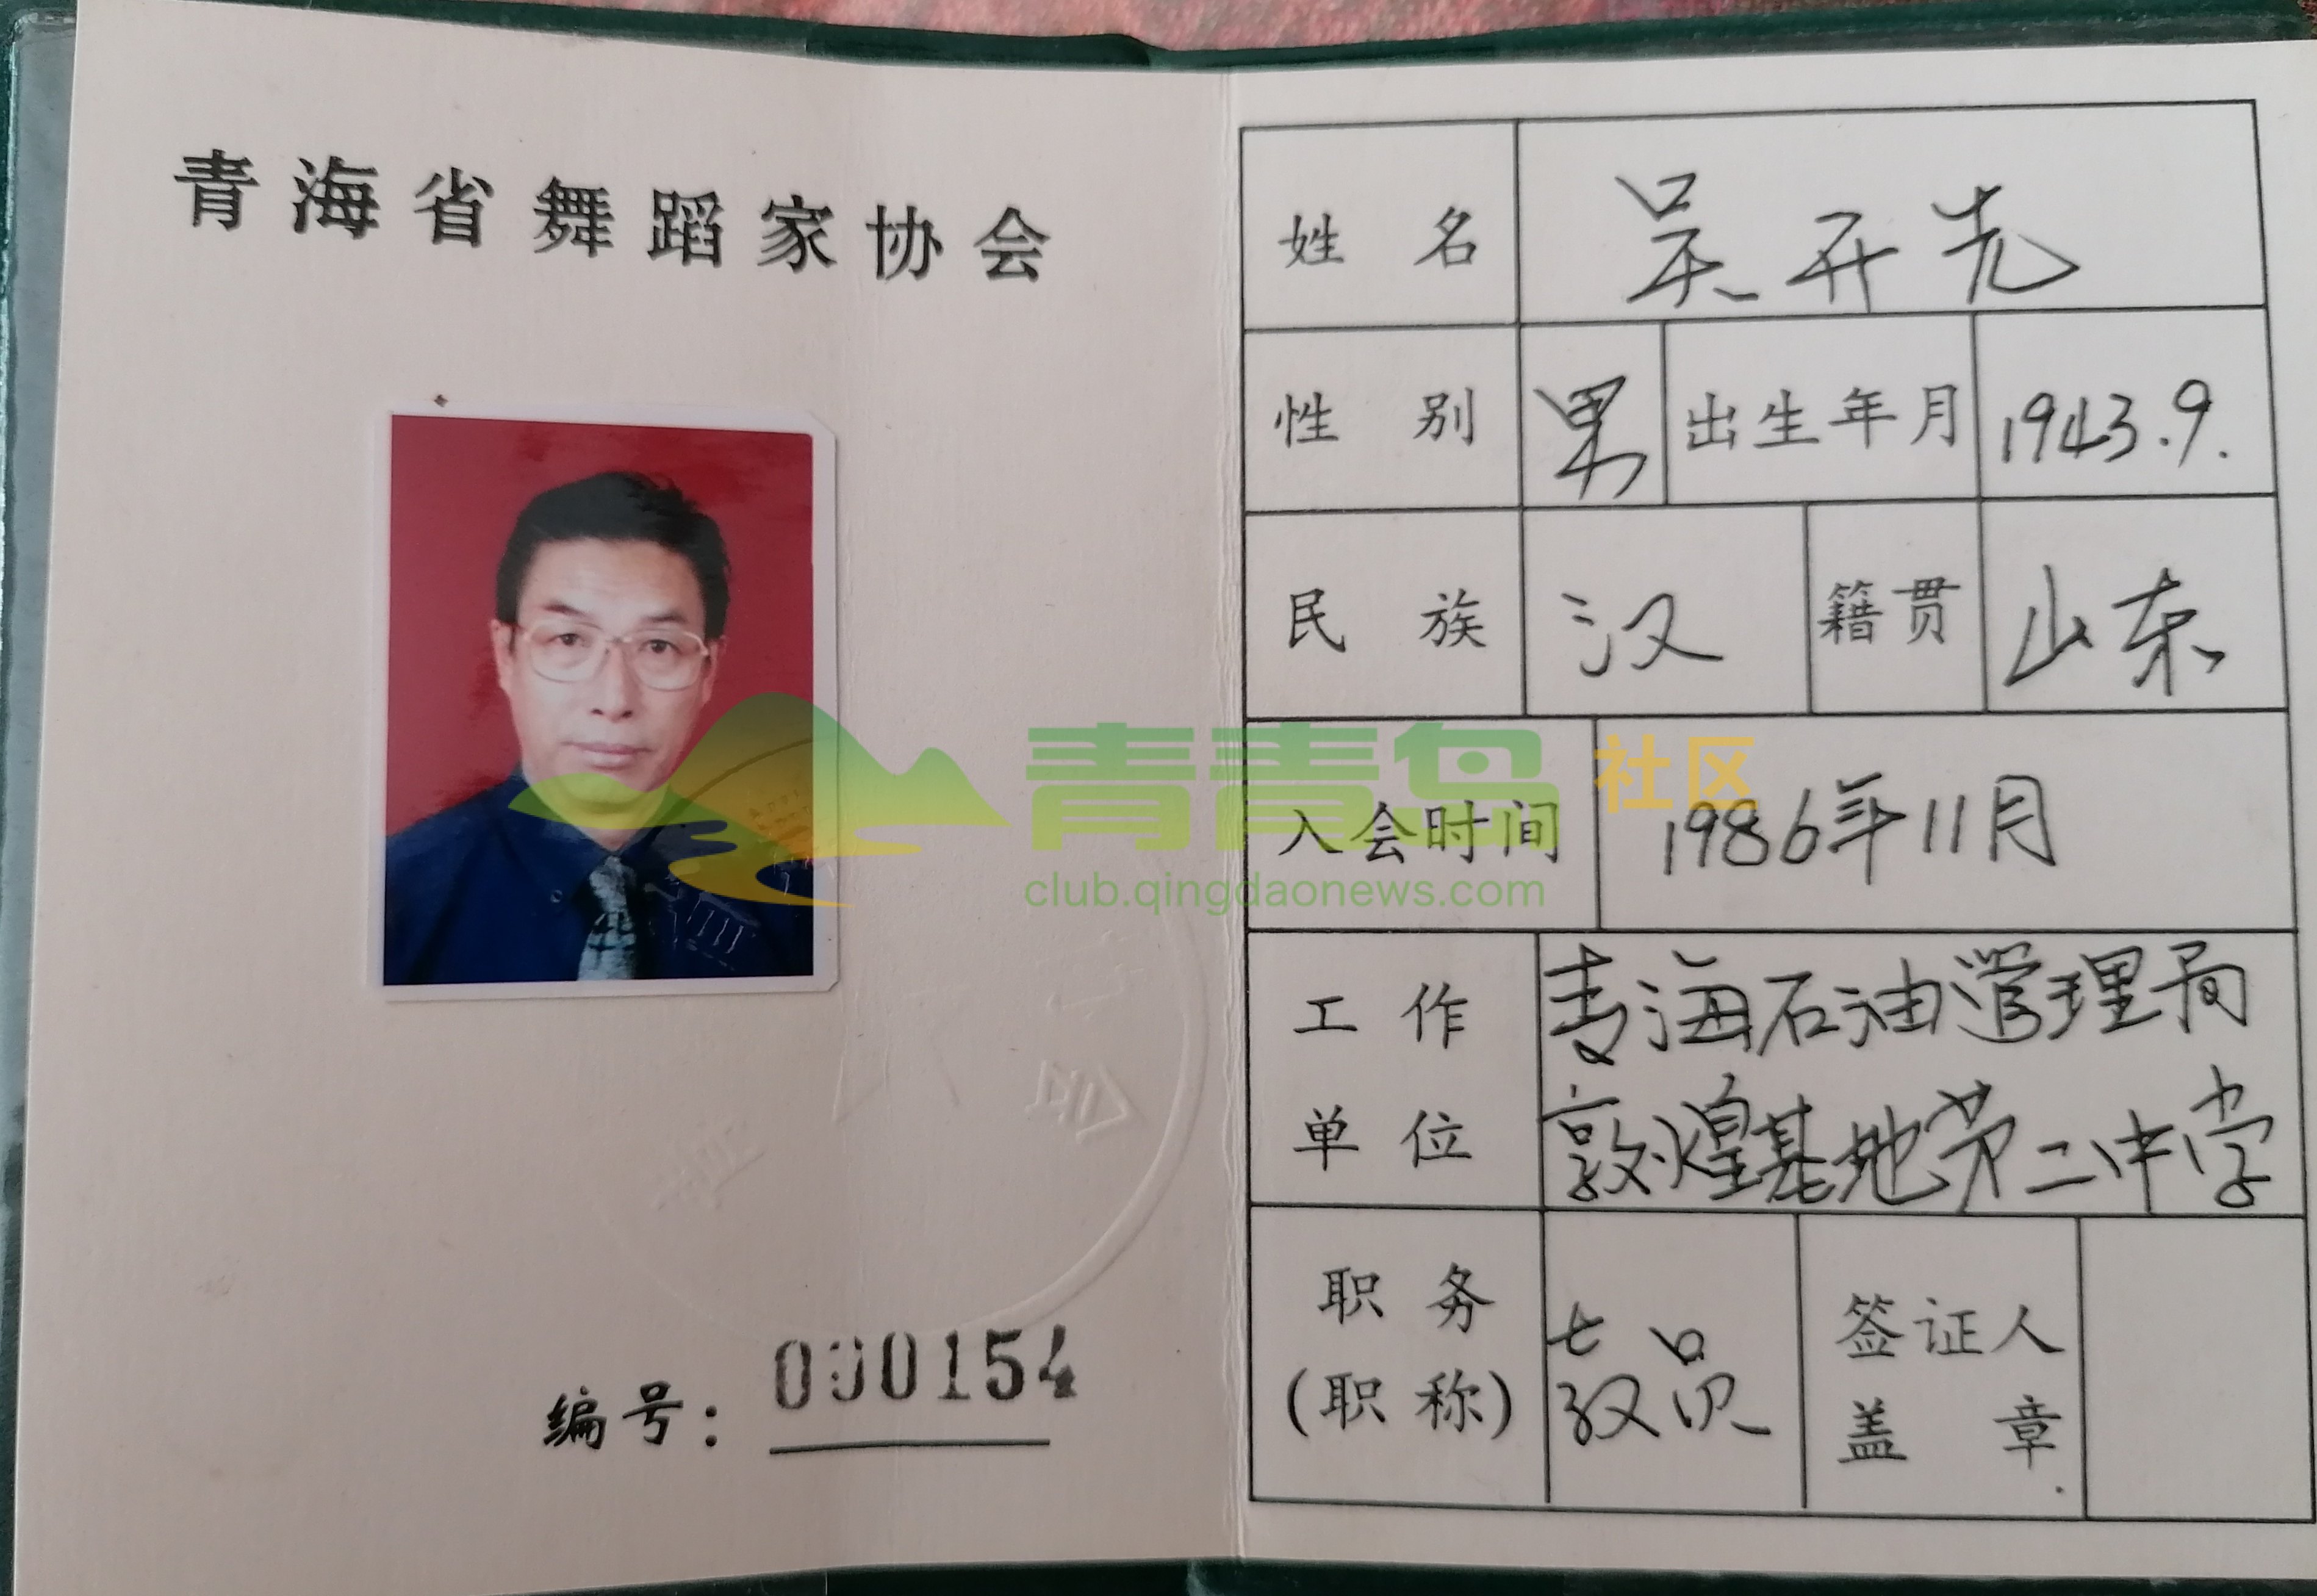 青海省舞蹈家协会
编号：000154
姓名 吴开先
性别 男 出生年月 1943.9.
民族 汉 籍贯 山东
入会时间 1986年11月
工作 青海石油管理局
单位 敦煌基地第二中学
职务 签证人
(职称) 教员 盖章
青青岛社区
club.qingdaonews.com